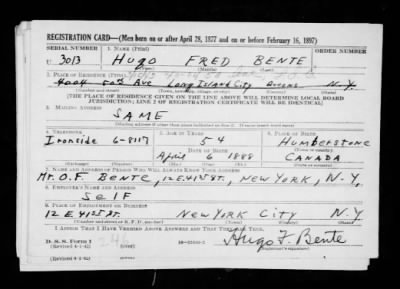 REGISTRATION CARD—(Men born on or after April 28, 1877 and on or before February 16, 1897)
SERIAL NUMBER 1. NAME (Print)
U 3013 HUGO FRED BENTE
(First) (Middle) (Last)
2. PLACE OF RESIDENCE (Print)
50th Ave Long Island City Queens N.Y.
[THE PLACE OF RESIDENCE GIVEN ON THE LINE ABOVE WILL DETERMINE LOCAL BOARD
JURISDICTION; LINE 2 OF REGISTRATION CERTIFICATE WILL BE IDENTICAL]
3. MAILING ADDRESS
SAME
[Mailing address if other than place indicated on line 2. If same insert word same]
4. TELEPHONE 5. AGE IN YEARS 6. PLACE OF BIRTH
Ironside 6-8117 54 HUMBERSTONE
DATE OF BIRTH
April 6 1888 CANADA
(Exchange) (Number) (Mo.) (Day) (Yr.) (State or country)
7. NAME AND ADDRESS OF PERSON WHO WILL ALWAYS KNOW YOUR ADDRESS
Mr. O.F. BENTE, 12 E. 41ST ST., NEW YORK, N.Y.
8. EMPLOYER'S NAME AND ADDRESS
SELF
9. PLACE OF EMPLOYMENT OR BUSINESS
12 E 41ST ST. NEW YORK CITY N.Y.
(Number and street or R. F. D. number) (Town) (County) (State)
I AFFIRM THAT I HAVE VERIFIED ABOVE ANSWERS AND THAT THEY ARE TRUE.
D. S. S. Form 1
(Revised 4-1-42) Hugo F. Bente
(Registrant's signature)